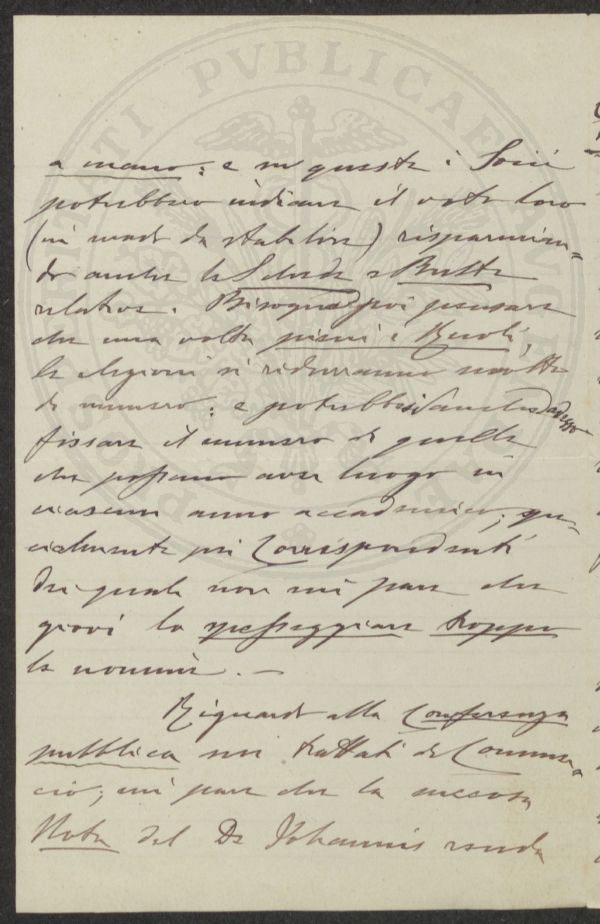 a mano: e in queste i Socii
potrebbero indicare il voto loro
(in modo da stabilire) risparmian=
do anche le Schede e Buste
relative. Bisogna poi pensare
che una volta pieni i Ruoli,
le elezioni si ridurranno molto
di numero: e potrebbesi anche dadesso
fissare il numero di quelle
che possano aver luogo in
ciascun anno accademico; spe=
cialmente pei Corrispondenti
dei quali non mi pare che
giovi lo spesseggiare troppo
le nomine. —
Riguardo alla Conferenza
pubblica sui trattati di Commer=
cio; mi pare che la
Nota del Dr Johannis renda